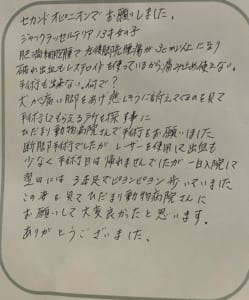 セカンドオピニオンでお願いしました。
ジャックラッセルテリア 13才 女子
肥満細胞腫で 右膝 腫瘍が 3センチ以上になり
破れ出血もしステロイドを使っているから痛み止め使えない。
手術も出来ない。何で?
犬が痛い脚をあげ 悲しそうに訴えてくるのを見て
手術してもらえる所を探す事に
ひだまり動物病院さんで手術をお願いしました
断脚手術でしたが レーザーを使用して出血も
少なく 手術日は帰れませんでしたが 一日入院して
翌日には 3本足でピョンピョン歩いていました
この姿を見て ひだまり動物病院さんに
お願いして大変良かったと思います。
ありがとうございました。